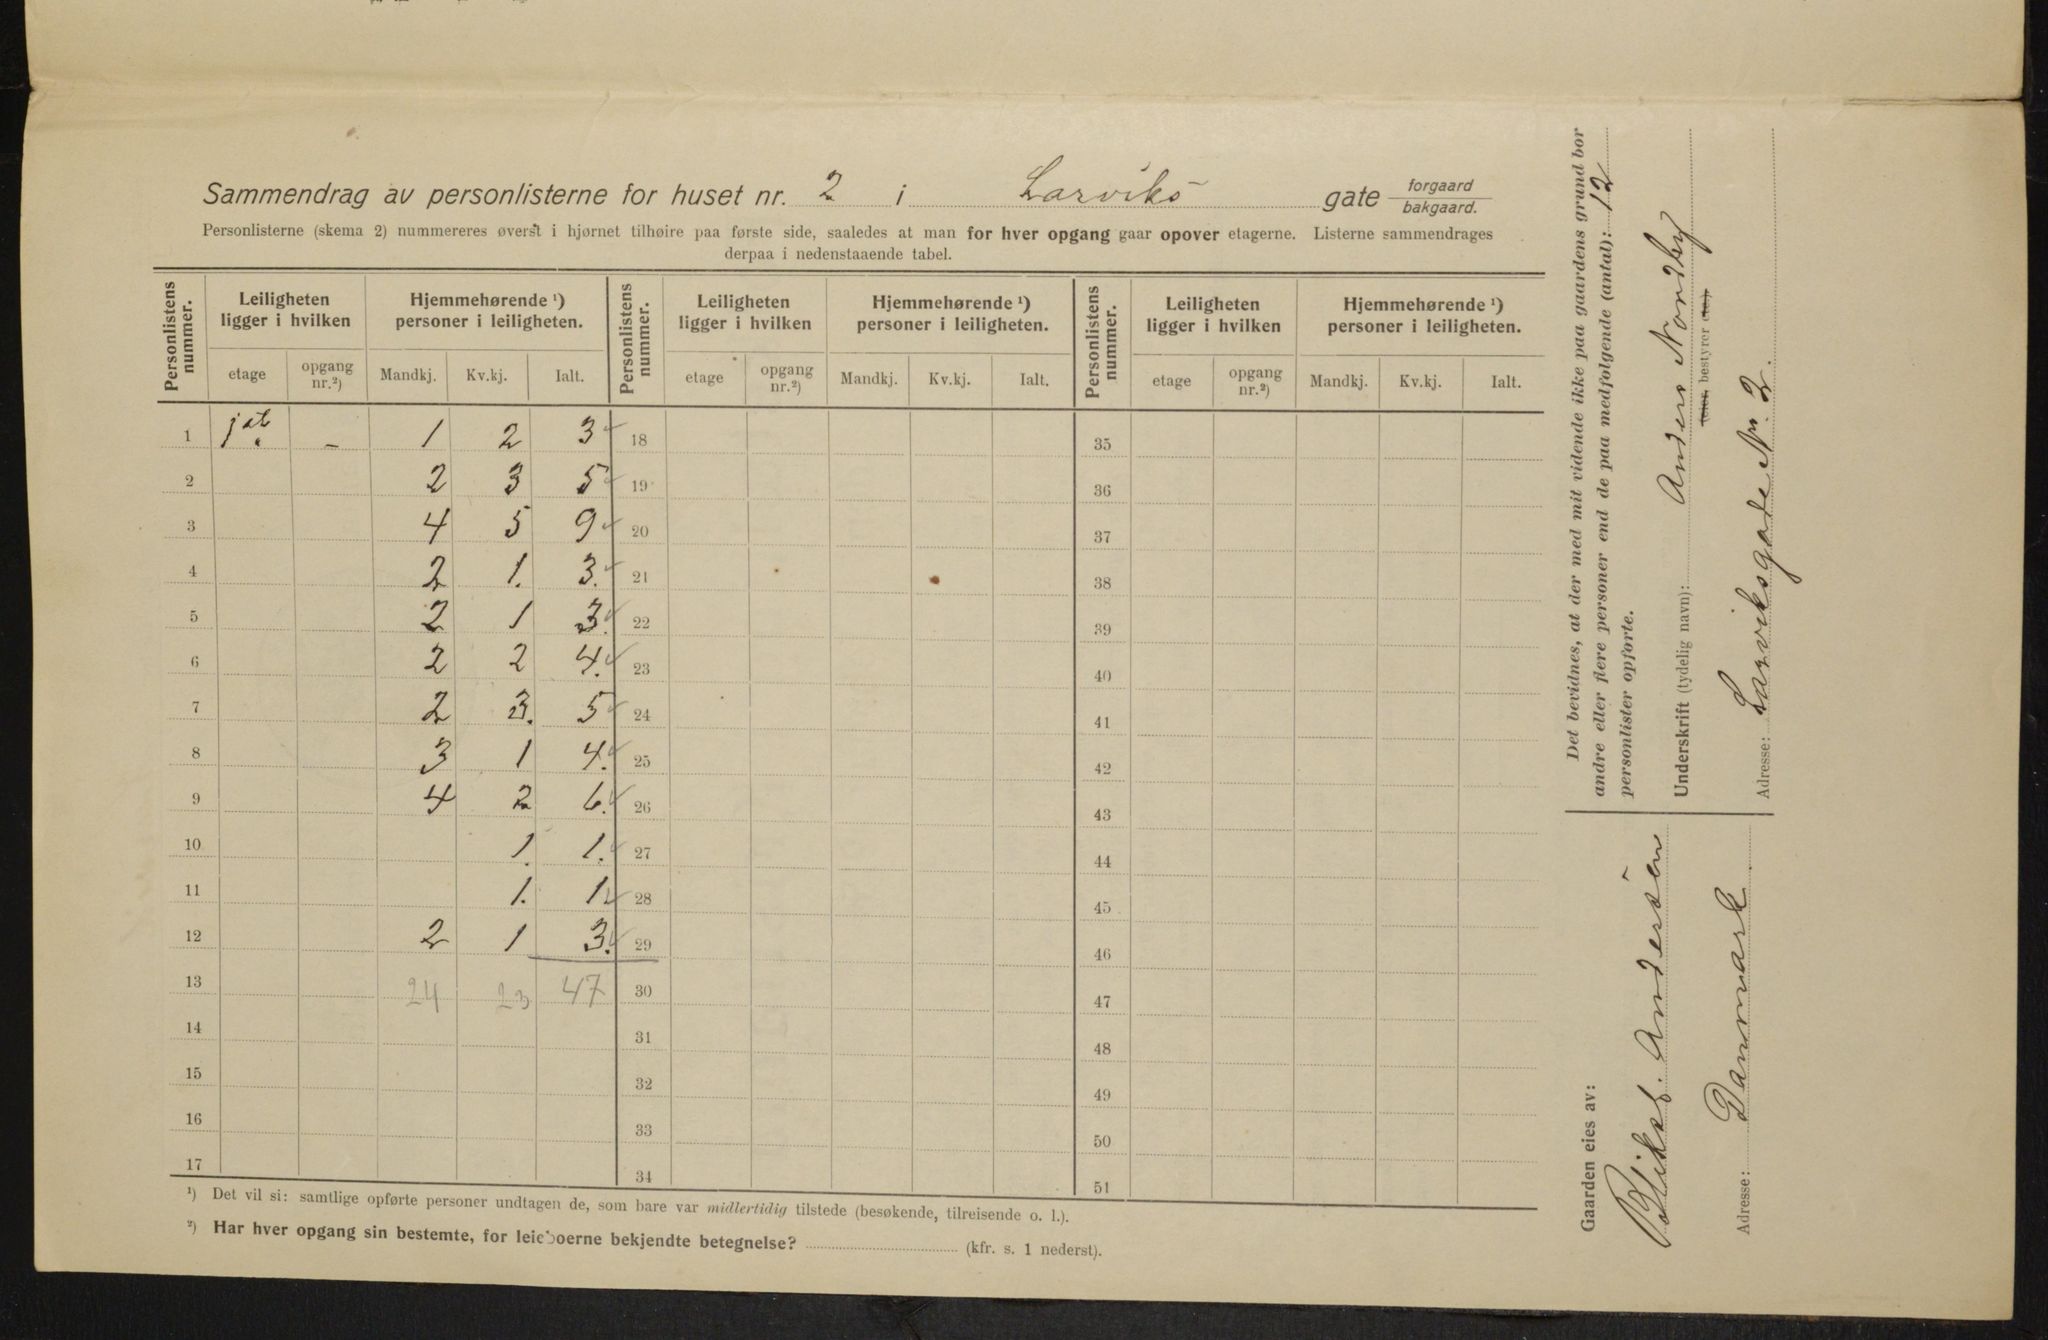 Sammendrag av personlisterne for huset nr. 2 i Larviks gate forgaard bakgaard.
Personlisterne (skema 2) nummereres øverst i hjørnet tilhøire paa første side, saaledes at man for hver opgang gaar opover etagerne. Listerne sammendrages
derpaa i nedenstaaende tabel.
Personlistens nummer. Leiligheten ligger i hvilken Hjemmehørende ¹) personer i leiligheten. Personlistens nummer. Leiligheten ligger i hvilken Hjemmehørende ¹) personer i leiligheten. Personlistens nummer. Leiligheten ligger i hvilken Hjemmehørende ¹) personer i leiligheten.
etage opgang nr.²) Mandkj. Kv.kj. Ialt. etage opgang nr.²) Mandkj. Kv.kj. Ialt. etage opgang nr.²) Mandkj. Kv.kj. Ialt.
1 – 1 2 3 18 35
2 2 3 5 19 36
3 4 5 9 20 37
4 2 1. 3. 21 38
5 2 1 3. 22 39
6 2 2 4. 23 40
7 2 3. 5 24 41
8 3 1 4. 25 42
9 4 2 6. 26 43
10 1. 1. 27 44
11 1. 1 28 45
12 2 1 3. 29 46
13 24 23 47 30 47
14 31 48
15 32 49
16 33 50
17 34 51
¹) Det vil si: samtlige opførte personer undtagen de, som bare var midlertidig tilstede (besøkende, tilreisende o. l.).
²) Har hver opgang sin bestemte, for leieboerne bekjendte betegnelse? (kfr. s. 1 nederst).
Det bevidnes, at der med mit vidende ikke paa gaardens grund bor
andre eller flere personer end de paa medfølgende (antal): 12
personlister opførte.
Underskrift (tydelig navn): Anders Nordby
(eier, bestyrer etc.).
Adresse: Larviksgade Nr. 2.
Gaarden eies av:
Andersen
Adresse: Danmark